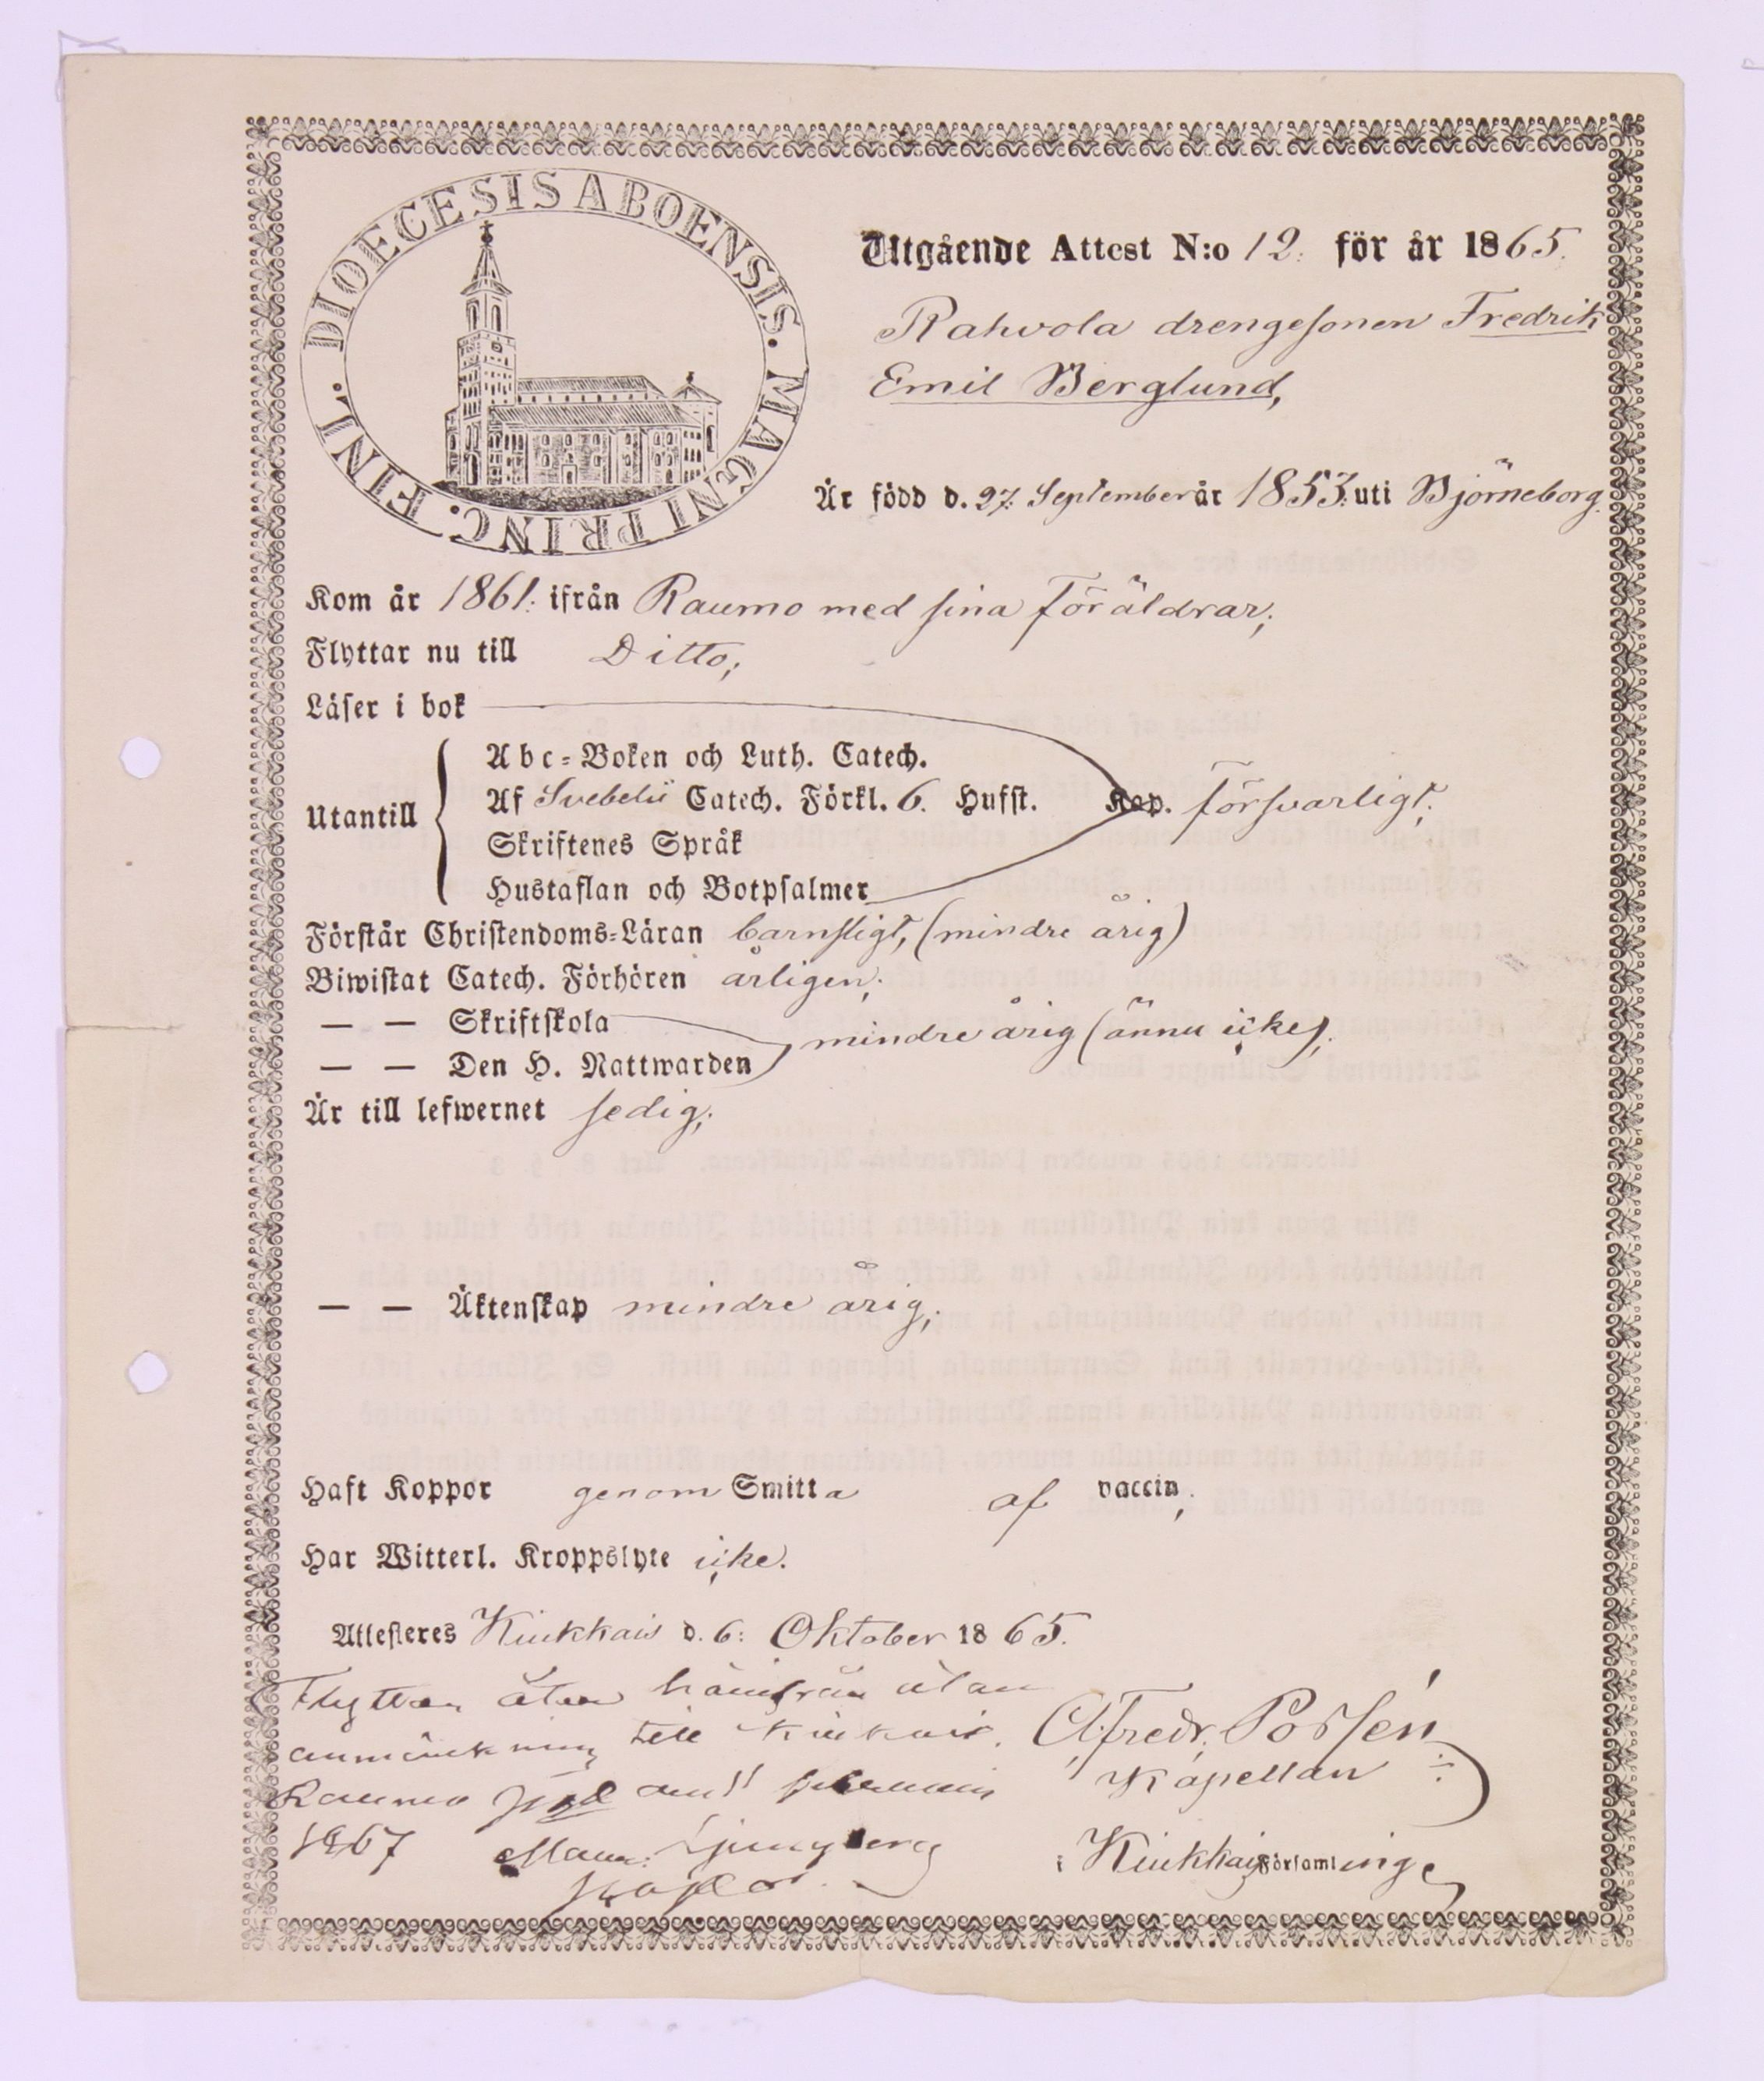 DIOECESIS ABOENSIS. MAGNI PRINC. FINL.
Utgående Attest N:o 12. för år 1865.
Rahvola drengesonen Fredrik
Emil Berglund,
Är född d. 27. September år 1853. uti Björneborg.
Kom år 1861. ifrån Raumo med sina föräldrar;
Flyttar nu till Ditto;
Läser i bok
Abc-Boken och Luth. Catech.
Utantill Af Svebelii Catech. Förkl. 6. Hufst. Kap. försvarligt;
Skriftenes Språk
Hustaflan och Botpsalmer
Förstår Christendoms-Läran barnsligt, (mindre årig)
Biwistat Catech. Förhören årligen;
— — Skriftskola
mindre årig (ännu icke);
— — Den H. Nattwarden
Är till lefwernet sedig;
— — Äktenskap mindre årig;
Haft Koppor genom Smitta af vaccin;
Har Witterl. Kroppslyte icke.
Attesteres Kiukkais d. 6: Oktober 1865.
Flyttar åter härifrån utan
anmärkning till Kiukais.
Raumo
1867
Ljungberg
Alfredr. Possén
Kapellan
i Kiukkais Församlinge